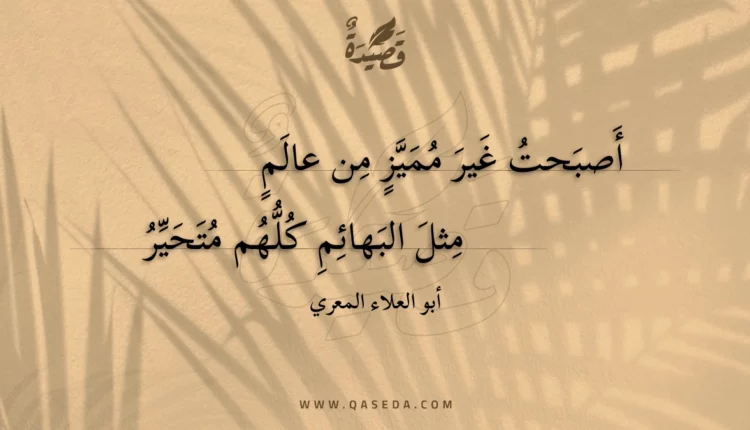 قَصِيْدَةٌ
أَصبَحتُ غَيرَ مُمَيَّزٍ مِن عالَمٍ
مِثلَ البَهائِمِ كُلُّهُم مُتَحَيِّرُ
أبو العلاء المعري
WWW.QASEDA.COM